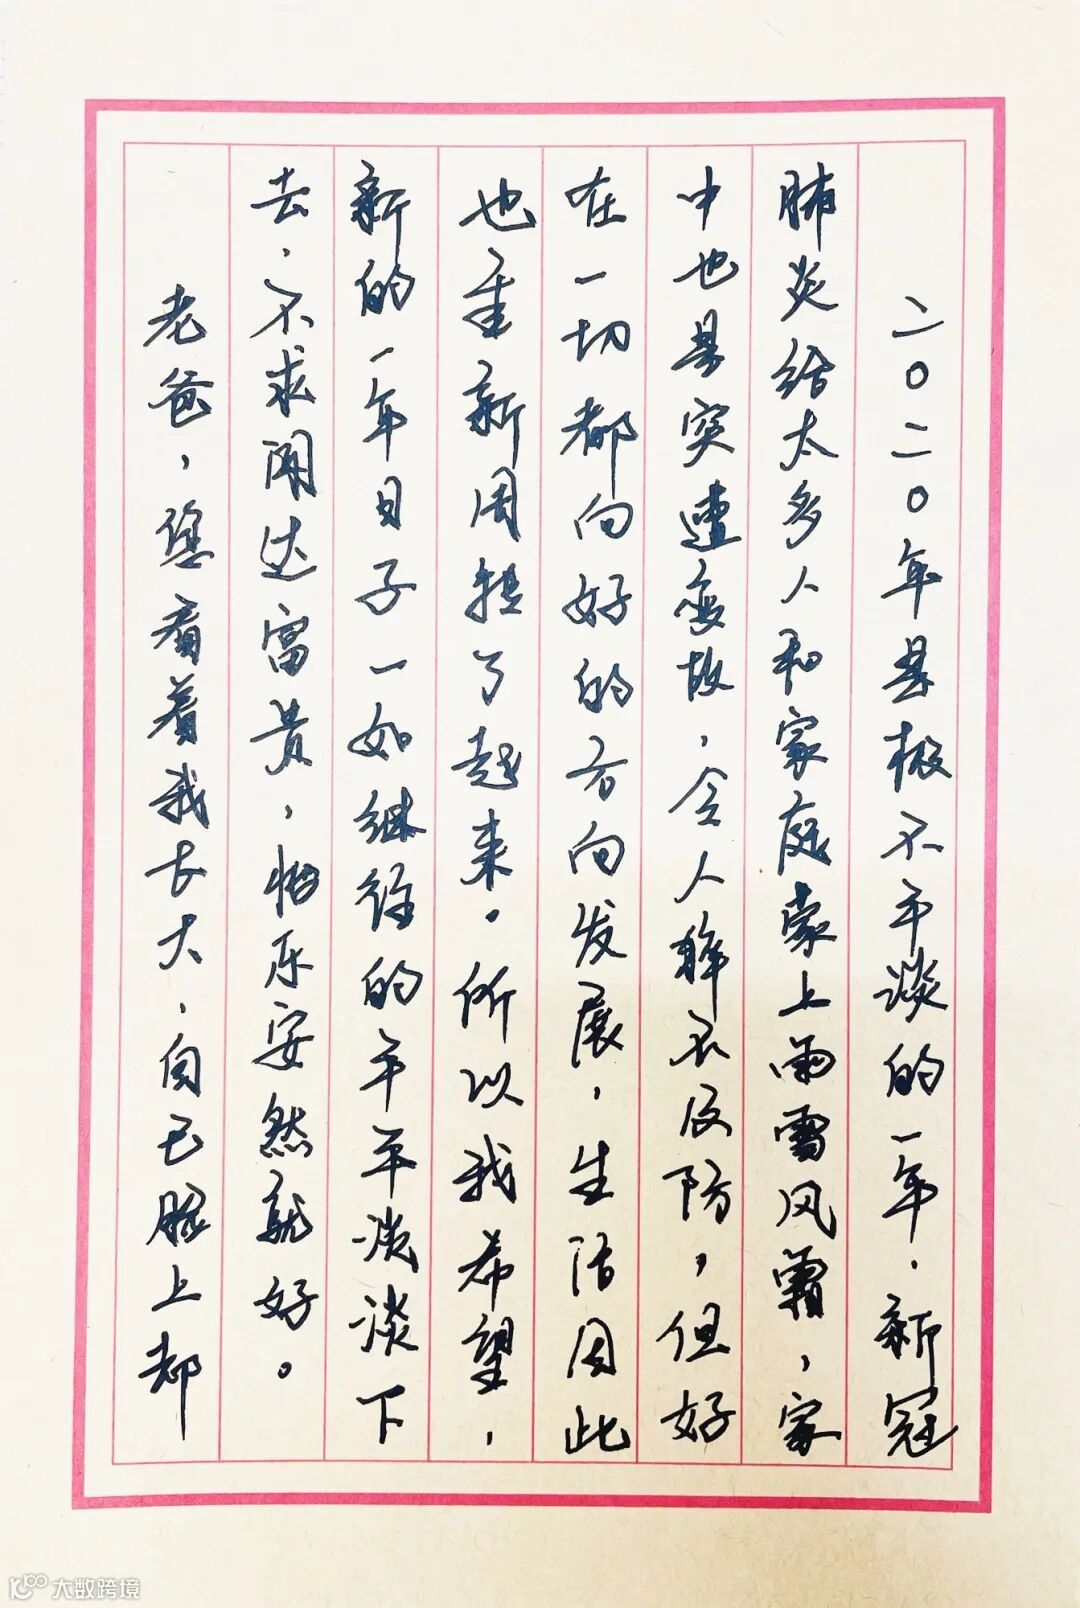 二〇二〇年是极不平淡的一年，新冠
肺炎给太多人和家庭蒙上雨雪风霜，家
中也是突遭变故，令人猝不及防，但好
在一切都向好的方向发展，生活因此
也重新周转了起来。所以我希望，
新的一年日子一如继往的平平淡淡下
去，不求闻达富贵，恬乐安然就好。
老爸，您看着我长大，自己脸上却
大数跨境